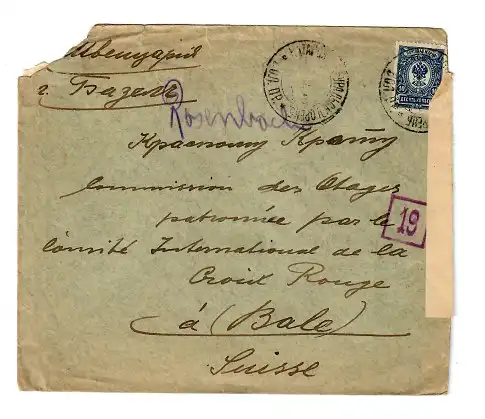 Швейцарія
г. Базель
Rosenbach
Красному Кресту
Commission des Otages
patronnée par le
Comité International de la
Croix Rouge
à (Bale)
Suisse
19